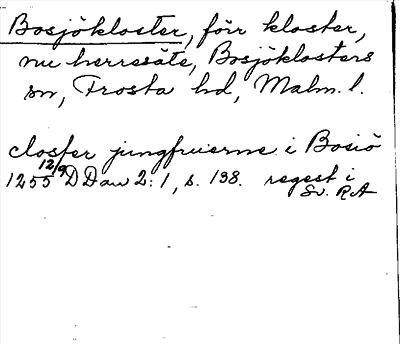 Bosjökloster, förr kloster,
nu herresäte, Bosjöklosters
sn, Frosta hd, Malm. l.
closter jungfruerne i Bosiö
1255 12/9 DDan 2:1, s. 138. regest i
Sv. RA